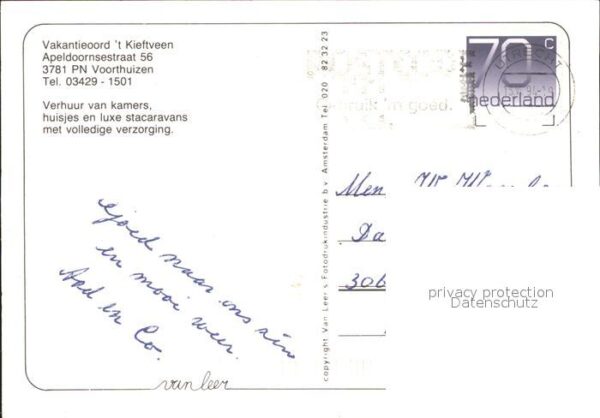 Vakantieoord 't Kieftveen
Apeldoornsestraat 56
3781 PN Voorthuizen
Tel. 03429 - 1501
Verhuur van kamers,
huisjes en luxe stacaravans
met volledige verzorging.
naar ons zin
en mooi weer.
Aad en Co.
van leer
copyright Van Leer's Fotodrukindustrie b.v. Amsterdam Tel. 020 82 32 23
70 c
nederland
UTRECHT
in goed.
Men
Da
306
privacy protection
Datenschutz